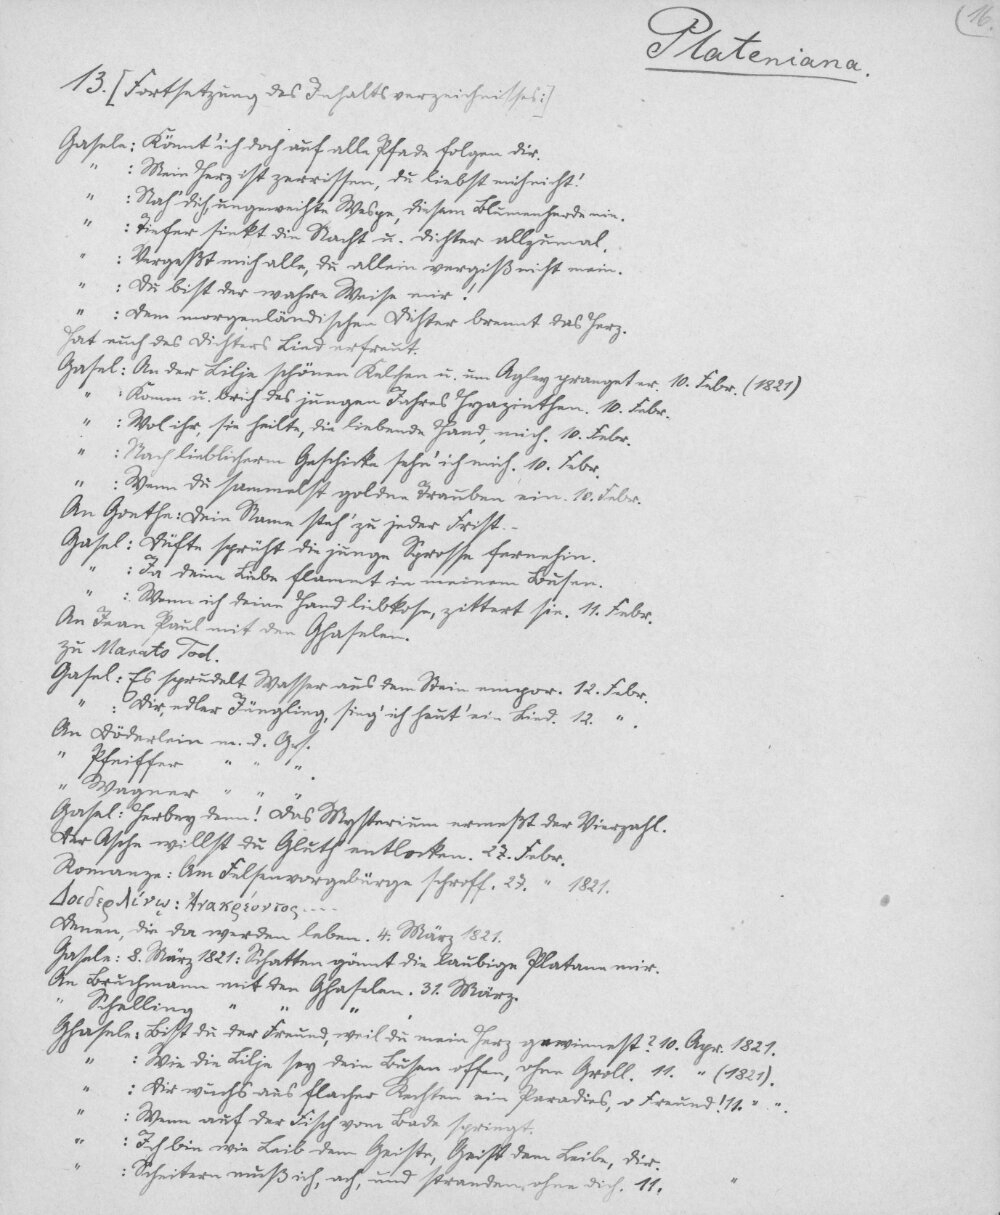 (16.
Plateniana.
13. [Fortsetzung des Inhaltsverzeichnisses:]
Gasele: Könnt' ich doch auf alle Pfade folgen dir.
" : Mein Herz ist zerrissen, du liebst mich nicht!
" : Nah' dich, ungeweihte Wespe, diesem Blumenherde nie.
" : Tiefer sinkt die Nacht u. dichter allzumal.
" : Vergeßt mich alle, du allein vergiß nicht mein.
" : Du bist der wahre Weise mir!
" : Dem morgenländischen Dichter brennt das Herz.
Hat euch des Dichters Lied erfreut.
Gasel: An der Lilje schönen Kelchen u. um Agley pranget er. 10. Febr. (1821)
" : Komm u. brich des jungen Jahres Hyazinthen. 10. Febr.
" : Wol ihr, sie heilte, die liebende Hand, mich. 10. Febr.
" : Nach lieblicherm Geschicke sehn' ich mich. 10. Febr.
" : Wenn du sammelst goldne Trauben ein. 10. Febr.
An Goethe: Dein Name steh' zu jeder Frist. -
Gasel: Düfte sprüht die junge Sprosse fernehin.
" : Ja deine Liebe flammt in meinem Busen.
" : Wenn ich deine Hand liebkose, zittert sie. 11. Febr.
An Jean Paul mit den Ghaselen.
zu Marats Tod.
Gasel: Es sprudelt Wasser aus dem Stein empor. 12. Febr.
" : Dir, edler Jüngling, sing' ich heut' ein Lied. 12. " .
An Döderlein m. d. Gas.
" Pfeiffer " " " .
" Wagner " " "
Gasel: Herbey denn! Das Mysterium ermeßt der Vierzahl.
Der Asche willst du Gluth entlocken. 27. Febr.
Romanze: Am Felsenvorgebürge schroff. 27. " 1821.
Δοεδερλίνῳ: Ἀνακρέοντος ....
Denen, die da werden leben. 4. März 1821.
Gasele: 8. März 1821: Schatten gönnt die laubige Platane mir.
An Bruchmann mit den Ghaselen. 31. März.
" Schelling " " " .
Ghasele: Bist du der Freund, weil du mein Herz gewinnest? 10. Apr. 1821.
" : Wie die Lilje sey dein Busen offen, ohne Groll. 11. " (1821).
" : Dir wuchs aus flacher Rechten ein Paradies, o Freund! 11. " " .
" : Wenn auf der Fisch vom Bade springt.
" : Ich bin wie Leib dem Geiste, Geist dem Leibe, dir.
" : Scheitern muß ich, ach, und stranden, ohne dich. 11. "